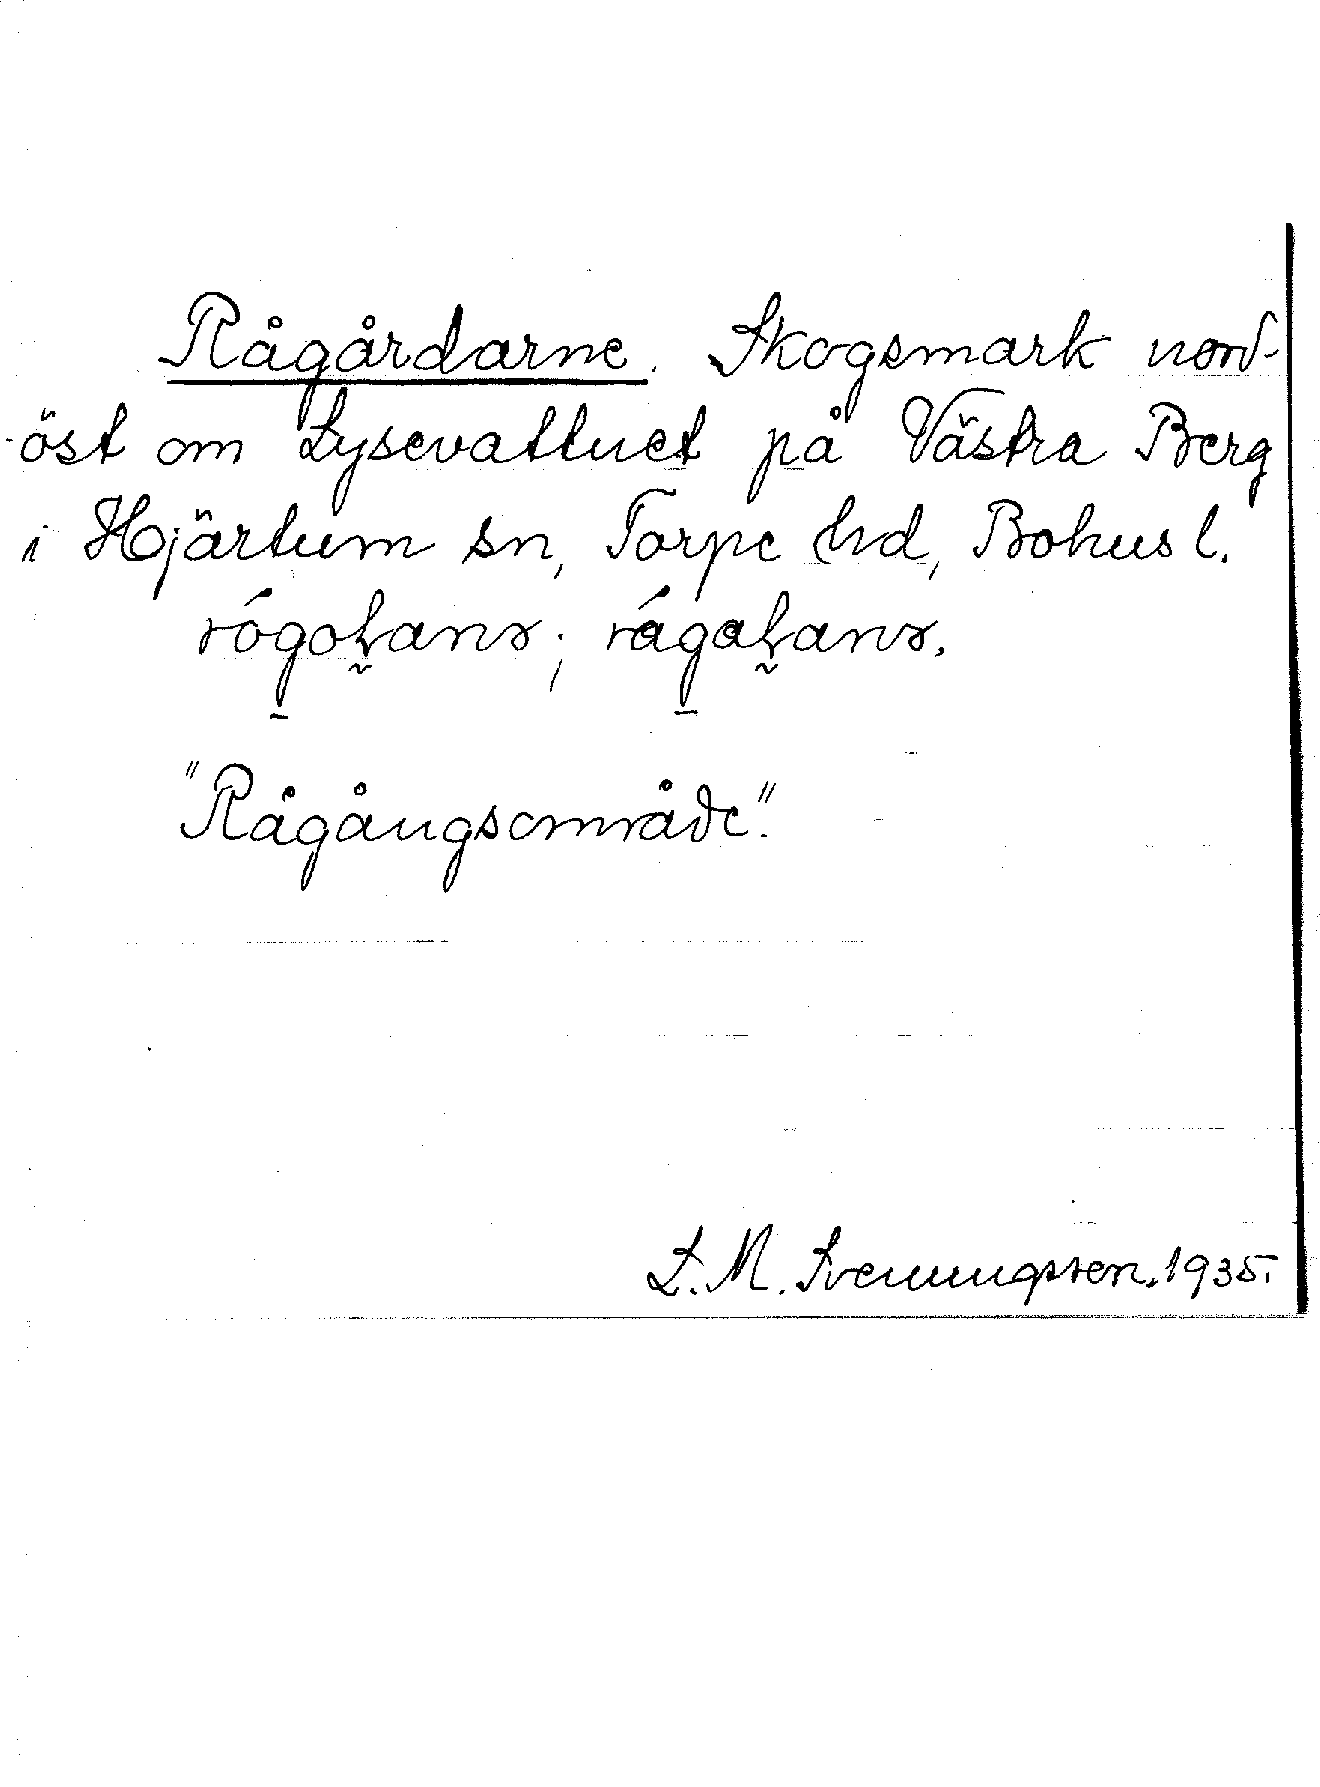 Rågårdarne. Skogsmark nord-
öst om Lysevattnet på Västra Berg
i Hjärtum sn, Torpe hd, Bohus l.
"Rågångsområde".
L. M. Svenungsson. 1935.